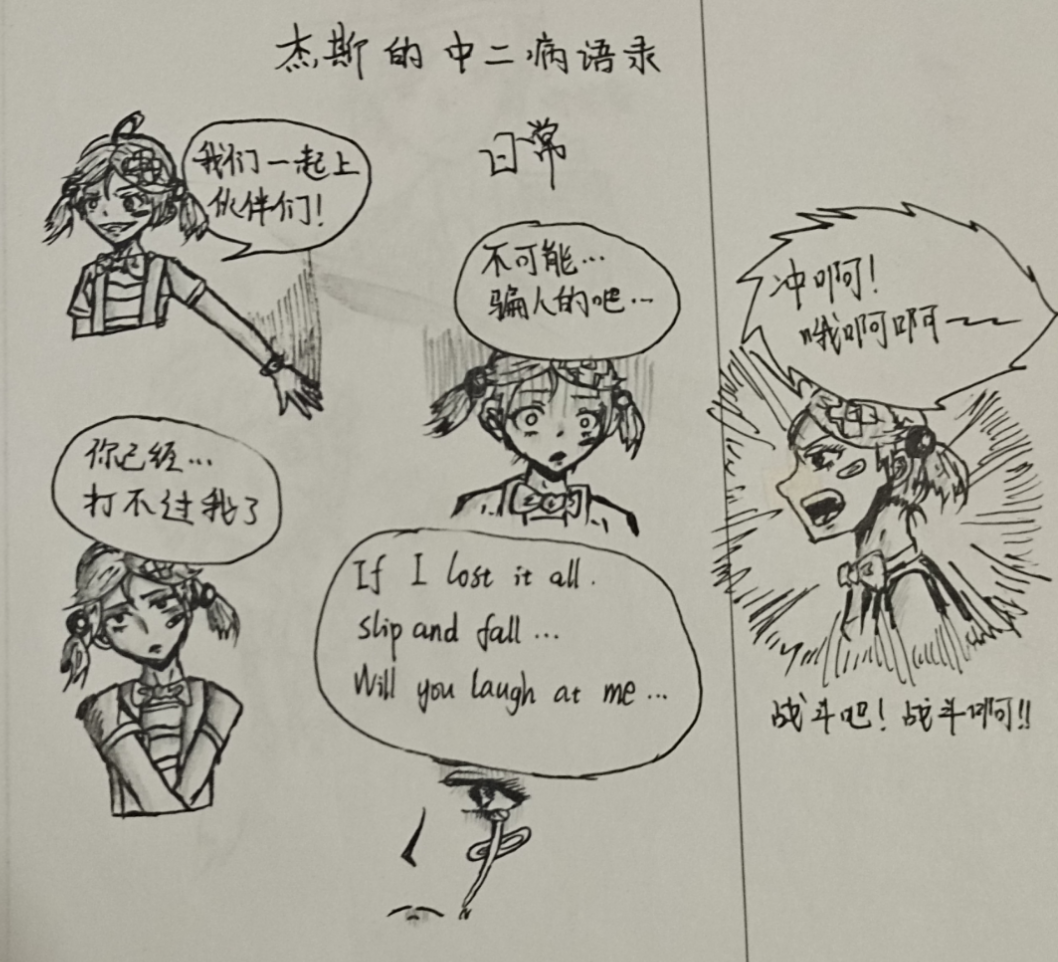 杰斯的中二病语录
日常
我们一起上
伙伴们!
不可能…
骗人的吧…
你已经…
打不过我了
If I lost it all.
slip and fall…
Will you laugh at me…
冲啊!
哦啊啊~~
战斗吧!战斗啊!!